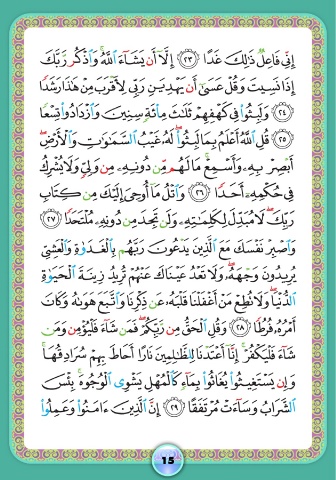 إِنِّي فَاعِلٌ ذَٰلِكَ غَدًا ﴿٢٣﴾ إِلَّا أَن يَشَاءَ اللَّهُ وَاذْكُر رَّبَّكَ
إِذَا نَسِيتَ وَقُلْ عَسَىٰ أَن يَهْدِيَنِ رَبِّي لِأَقْرَبَ مِنْ هَٰذَا رَشَدًا
﴿٢٤﴾ وَلَبِثُوا فِي كَهْفِهِمْ ثَلَاثَ مِائَةٍ سِنِينَ وَازْدَادُوا تِسْعًا
﴿٢٥﴾ قُلِ اللَّهُ أَعْلَمُ بِمَا لَبِثُوا لَهُ غَيْبُ السَّمَاوَاتِ وَالْأَرْضِ
أَبْصِرْ بِهِ وَأَسْمِعْ مَا لَهُم مِّن دُونِهِ مِن وَلِيٍّ وَلَا يُشْرِكُ
فِي حُكْمِهِ أَحَدًا ﴿٢٦﴾ وَاتْلُ مَا أُوحِيَ إِلَيْكَ مِن كِتَابِ
رَبِّكَ لَا مُبَدِّلَ لِكَلِمَاتِهِ وَلَن تَجِدَ مِن دُونِهِ مُلْتَحَدًا ﴿٢٧﴾
وَاصْبِرْ نَفْسَكَ مَعَ الَّذِينَ يَدْعُونَ رَبَّهُم بِالْغَدَاةِ وَالْعَشِيِّ
يُرِيدُونَ وَجْهَهُ وَلَا تَعْدُ عَيْنَاكَ عَنْهُمْ تُرِيدُ زِينَةَ الْحَيَاةِ
الدُّنْيَا وَلَا تُطِعْ مَنْ أَغْفَلْنَا قَلْبَهُ عَن ذِكْرِنَا وَاتَّبَعَ هَوَاهُ وَكَانَ
أَمْرُهُ فُرُطًا ﴿٢٨﴾ وَقُلِ الْحَقُّ مِن رَّبِّكُمْ فَمَن شَاءَ فَلْيُؤْمِن وَمَن
شَاءَ فَلْيَكْفُرْ إِنَّا أَعْتَدْنَا لِلظَّالِمِينَ نَارًا أَحَاطَ بِهِمْ سُرَادِقُهَا
وَإِن يَسْتَغِيثُوا يُغَاثُوا بِمَاءٍ كَالْمُهْلِ يَشْوِي الْوُجُوهَ بِئْسَ
الشَّرَابُ وَسَاءَتْ مُرْتَفَقًا ﴿٢٩﴾ إِنَّ الَّذِينَ آمَنُوا وَعَمِلُوا
15